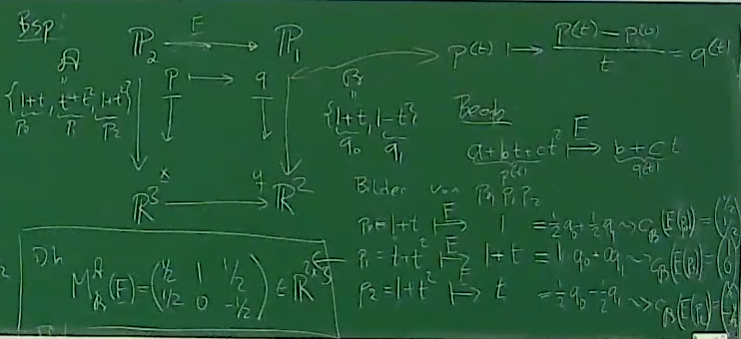 Bsp:
P₂ —E→ P₁
A = {1+t, t+t², 1+t²}
p₀ p₁ p₂
p ↦ q
B = {1+t, 1-t}
q₀ q₁
x y
R³ → R²
p(t) ↦ (p(t) - p(0)) / t = q(t)
Beob
a+bt+ct² ↦E b+ct
p(t) q(t)
Bilder von p₀ p₁ p₂
p₀ = 1+t ↦E 1 = ½q₀+½q₁ ⇝ c_B(E(p₀)) = (1/2 1/2)
p₁ = t+t² ↦E 1+t = 1·q₀+0q₁ ⇝ c_B(E(p₁)) = (1 0)
p₂ = 1+t² ↦E t = ½q₀-½q₁ ⇝ c_B(E(p₂)) = (½ -½)
Dh
M_B^A(E) = (½ 1 ½
1/2 0 -1/2) ∈ R^{2×3}